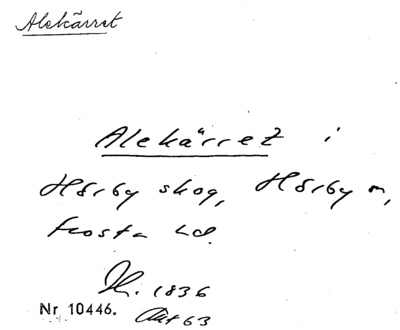 Alekärret
Alekärret i
Hörby skog, Hörby sn,
Frosta hd.
1836
Nr 10446. Akt 63